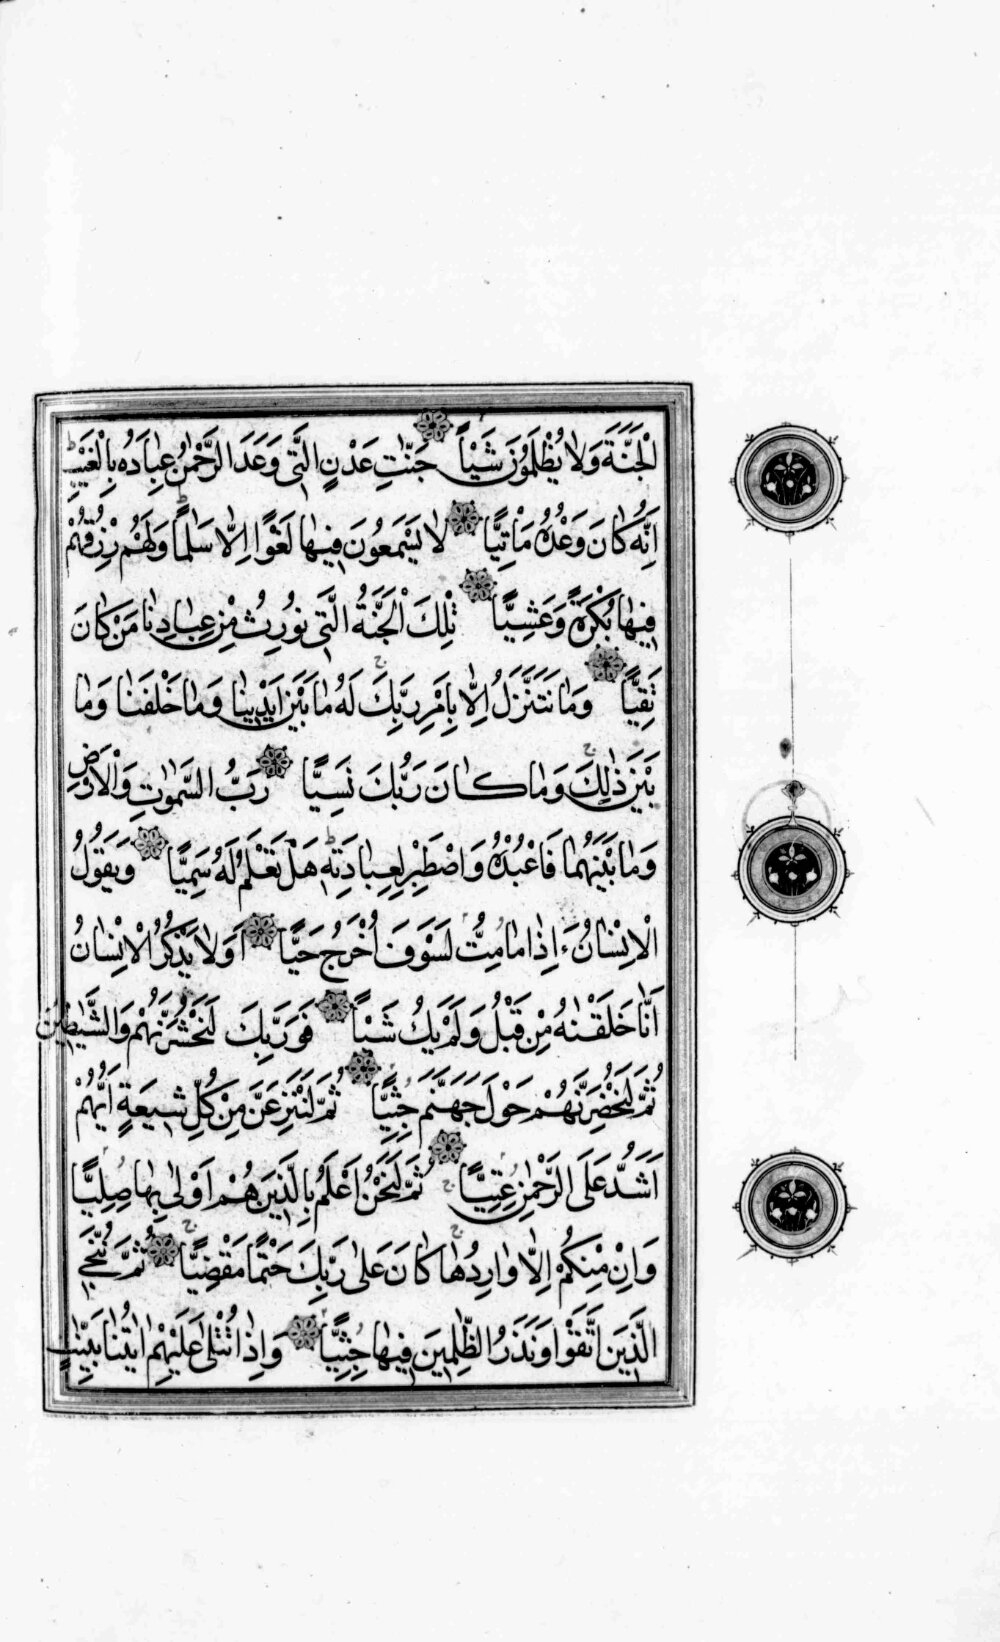 الْجَنَّةَ وَلَا يُظْلَمُونَ شَيْـًٔا جَنَّاتِ عَدْنٍ الَّتِي وَعَدَ الرَّحْمٰنُ عِبَادَهُ بِالْغَيْبِ
اِنَّهُ كَانَ وَعْدُهُ مَاْتِيًّا لَا يَسْمَعُونَ فِيهَا لَغْوًا اِلَّا سَلٰمًا وَلَهُمْ رِزْقُهُمْ
فِيهَا بُكْرَةً وَعَشِيًّا تِلْكَ الْجَنَّةُ الَّتِي نُورِثُ مِنْ عِبَادِنَا مَنْ كَانَ
تَقِيًّا وَمَا نَتَنَزَّلُ اِلَّا بِاَمْرِ رَبِّكَ لَهُ مَا بَيْنَ اَيْدِينَا وَمَا خَلْفَنَا وَمَا
بَيْنَ ذٰلِكَ وَمَا كَانَ رَبُّكَ نَسِيًّا رَبُّ السَّمٰوٰتِ وَالْاَرْضِ
وَمَا بَيْنَهُمَا فَاعْبُدْهُ وَاصْطَبِرْ لِعِبَادَتِهِ هَلْ تَعْلَمُ لَهُ سَمِيًّا وَيَقُولُ
الْاِنْسَانُ ءَاِذَا مَا مِتُّ لَسَوْفَ اُخْرَجُ حَيًّا اَوَلَا يَذْكُرُ الْاِنْسَانُ
اَنَّا خَلَقْنٰهُ مِنْ قَبْلُ وَلَمْ يَكُ شَيْـًٔا فَوَرَبِّكَ لَنَحْشُرَنَّهُمْ وَالشَّيٰطِينَ
ثُمَّ لَنُحْضِرَنَّهُمْ حَوْلَ جَهَنَّمَ جِثِيًّا ثُمَّ لَنَنْزِعَنَّ مِنْ كُلِّ شِيعَةٍ اَيُّهُمْ
اَشَدُّ عَلَى الرَّحْمٰنِ عِتِيًّا ثُمَّ لَنَحْنُ اَعْلَمُ بِالَّذِينَ هُمْ اَوْلٰى بِهَا صِلِيًّا
وَاِنْ مِنْكُمْ اِلَّا وَارِدُهَا كَانَ عَلٰى رَبِّكَ حَتْمًا مَقْضِيًّا ثُمَّ نُنَجِّي
الَّذِينَ اتَّقَوْا وَنَذَرُ الظّٰلِمِينَ فِيهَا جِثِيًّا وَاِذَا تُتْلٰى عَلَيْهِمْ اٰيٰتُنَا بَيِّنٰتٍ